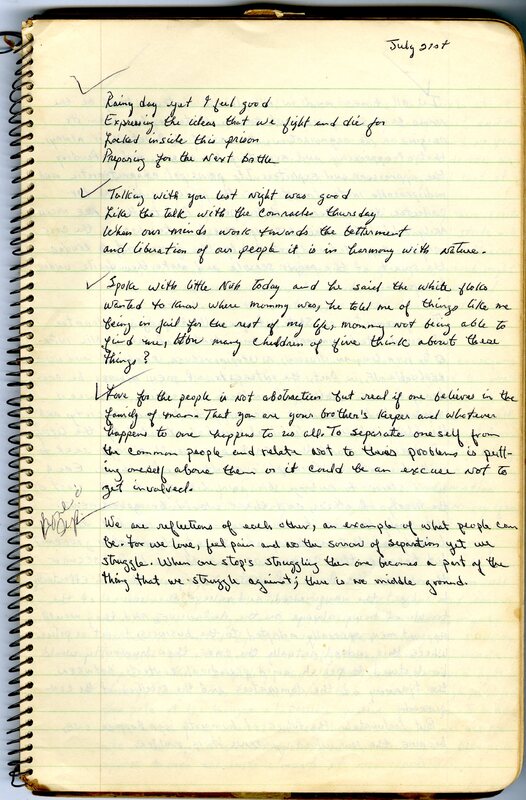 July 21st
Rainy day yet I feel good
Expressing the ideas that we fight and die for
Locked inside this prison
Preparing for the next battle
Talking with you last night was good
Like the talk with the comrades thursday
When our minds work towards the betterment
and liberation of our people it is in harmony with nature.
Spoke with little Nub today and he said the white folks
wanted to know where mommy was, he told me of things like me
being in jail for the rest of my life, mommy not being able to
find me, How many children of five think about these
things?
Love for the people is not abstraction but real if one believes in the
family of man. That you are your brother's keeper and whatever
happens to one happens to us all. To separate oneself from
the common people and relate not to their problems is putt-
ing oneself above them or it could be an excuse not to
get involved.
We are reflections of each other, an example of what people can
be. For we love, feel pain and no the sorrow of separation yet we
struggle. When one stop's struggling then one becomes a part of the
thing that we struggle against; there is no middle ground.